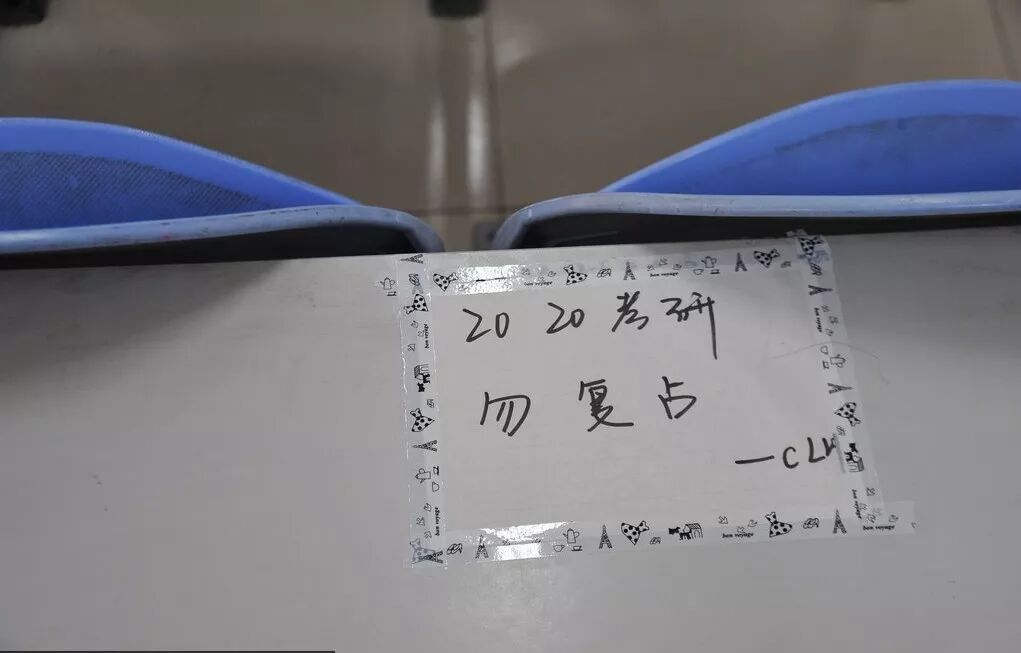 2020考研
勿复占
bon voyage
bon voyage
bon voyage
bon voyage